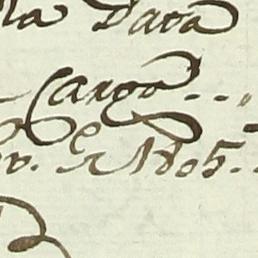 la Data
Cargo
1805.